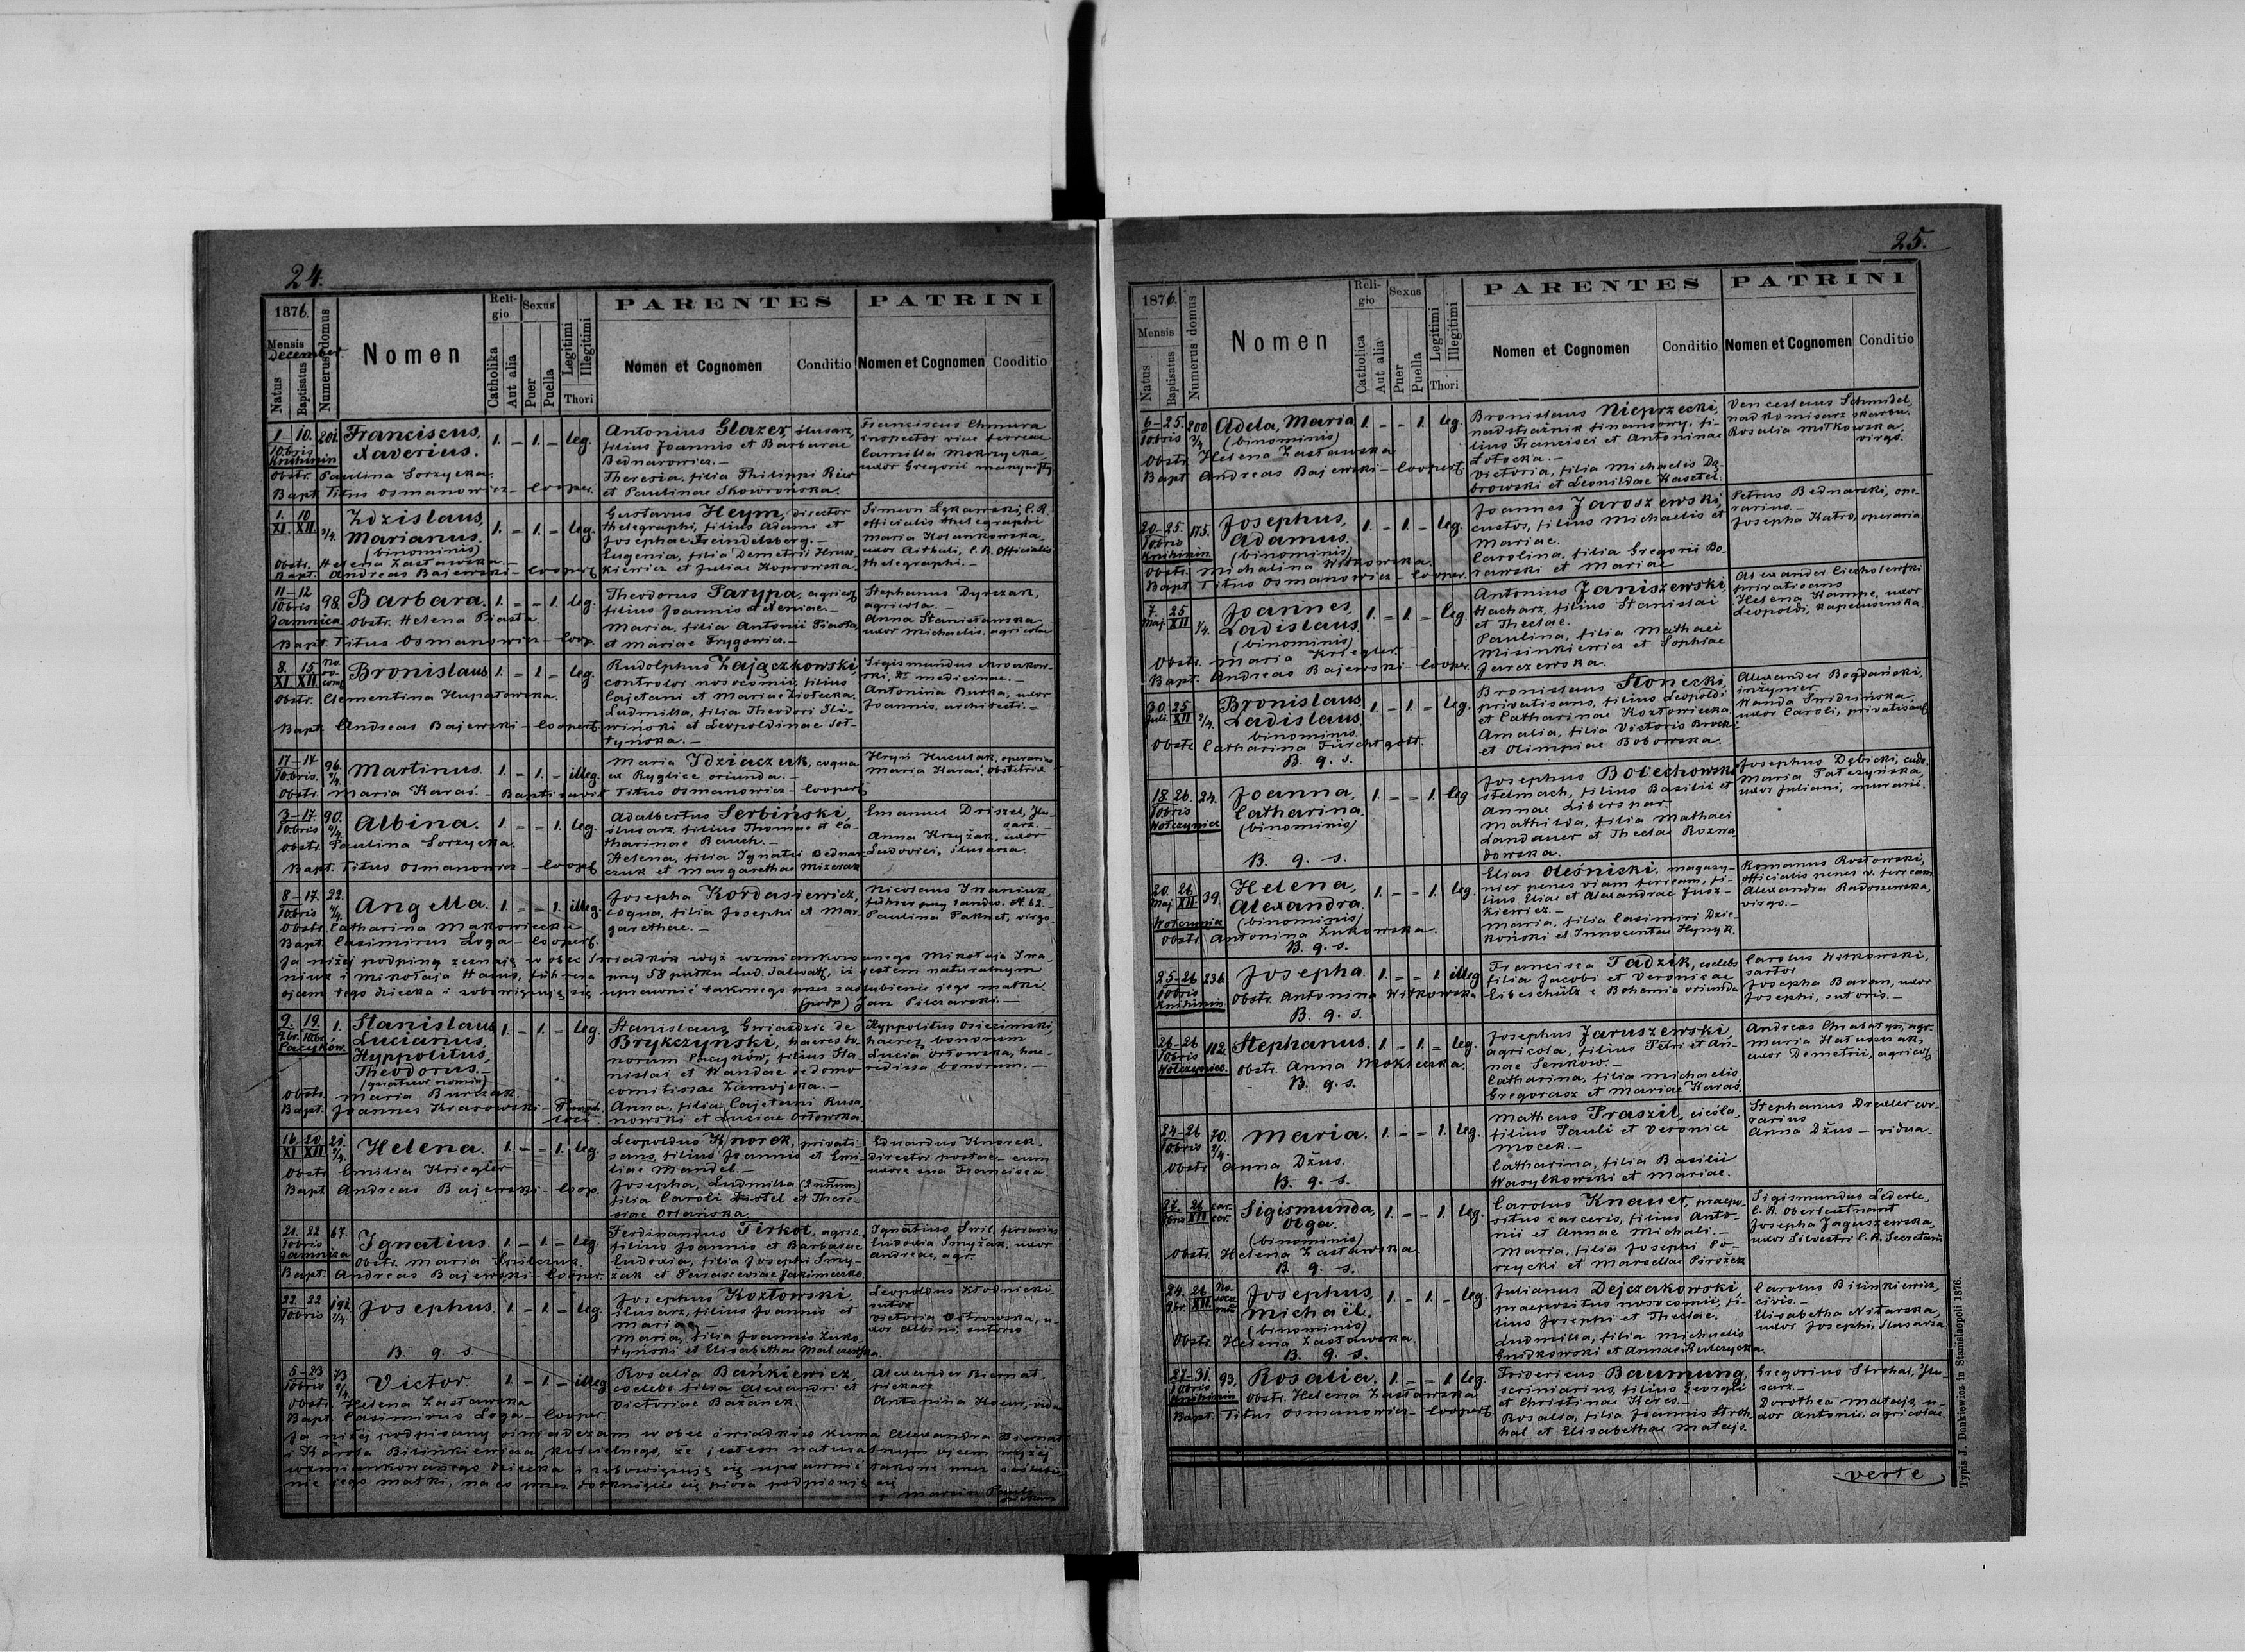 24.
1876.
Mensis
december.
Natus
Baptisatus
Numerus domus
Nomen
Religio
Catholika
Aut alia
Sexus
Puer
Puella
Legitimi
Illegitimi
Thori
PARENTES
Nomen et Cognomen
Conditio
PATRINI
Nomen et Cognomen
Conditio
1. 10. 201. Franciscus, 1. - 1. - leg.
10bris Xaverius.
Knihinin
Obstr. Paulina Sorzycka.
Bapt. Titus Osmanowicz - Cooper.
Antonius Glazer, ślusarz,
filius Joannis et Barbarae
Bednarowicz.-
Theresia, filia Philippi
et Paulinae Skowrońska.
Franciscus Chmura
inspector viae ferreae
Camilla Mokrzycka
uxor Gregorii
1. 10 3/4. Zdzislaus, 1. - 1. - leg.
XI. XII. Marianus.
(binominis)
Obstr. Helena Zasławska.-
Bapt. Andreas Bajewski - Cooper.
Gustavus Heym, director
thelegraphi, filius Adami et
Josephae Freindelsberg.-
Eugenia, filia Demetrii
kiewicz et Juliae Koprowska.
Simeon C.R.
officialis thelegraphi
Maria Kolankowska,
uxor C.R. Officialis
thelegraphi.-
11-12 98. Barbara. 1. - - 1. leg.
10bris
Jamnica Obstr. Helena Piasta
Bapt. Titus Osmanowicz - Coop.
Theodorus Parypa, agricol.
filius Joannis et Xeniae-
Maria, filia Antonii Piasta,
et Mariae Frygowicz.-
Stephanus Dyrzak,
agricola.-
Anna Stanisławska,
uxor Michaelis, agricolae
8. 15 Bronislaus 1. - 1 - leg.
XI. XII
Obstr. Clementina
Bapt. Andreas Bajewski - Cooper.
Rudolphus Zajączkowski,
controlor nosocomii, filius
Cajetani et Mariae Ziołecka.
Ludmilla, filia Theodori Śli-
wiński et Leopoldinae Soł-
tyńska.-
Sigismundus Mroczkow-
ski, Dr medicinae.-
Antonina Burka, uxor
Joannis, architecti.-
17-17 96. Martinus. 1. - 1. - illeg.
10bris.
Obstr. Maria Karaś. - Baptisavit Titus Osmanowicz - Cooper.
Maria Idziaczuk, coqua
ex Ryglice oriunda.-
Hryń Huculak, operarius
Maria Karaś, obstetrix
3-17. 90. Albina. 1. - - 1. leg.
10bris
Obstr. Paulina Sorzycka.
Bapt. Titus Osmanowicz - Cooper.
Adalbertus Serbiński,
ślusarz, filius Thomae et Ca-
tharinae Bauch.-
Helena, filia Ignatii Bednar-
czuk et Margarethae
Emanuel Driszel, ślu-
sarz.-
Anna Krzyżak, uxor
Ludovici, ślusarza
8-17. 22. Angella. 1. - - 1. illeg.
10bris
Obstr. Catharina Makowiecka
Bapt. Casimirus Loga - Cooper.
Josepha Kordasiewicz,
coqua, filia Josephi et Mar-
garethae.-
Nicolaus Iwaniuk,
führer przy
Paulina virgo.
Ja niżej podpisany zeznaję w obec świadków wyż wzmiankowanego Mikołaja Iwa-
niuk i Mikołaja führera przy 58 pułku iż jestem naturalnym
ojcem tego dziecka i zobowiązuję się uprawnić takowego przez zaślubienie jego matki.
(podp) Jan Pilczarski.-
9. 19. 1. Stanislaus 1. - 1. - leg.
Lucianus,
Pacyków. Hyppolitus,
Theodorus.-
(quatuor nomin)
obstr. Maria
Bapt. Joannes Krasowski - Paroch.
loci.
Stanislaus Gwiazdzic de
Brykczyński, haeres bo-
norum Pacyków, filius Sta-
nislai et Wandae de domo
comitissae Zamojska.-
Anna, filia Cajetani Rusa-
nowski et Luciae Orłowska
Hyppolitus Osiecimski,
haeres bonorum
Lucia Orłowska, hae-
redissa bonorum.-
16. 20 21. Helena. 1. - - 1. leg.
XI XII
Obstr. Emilia Kriegler
Bapt Andreas Bajewski - Coop.
Leopoldus Knorek, privati-
sans, filius Joannis et Emi-
liae Mandel.-
Josepha, Ludmilla (2 nminum)
filia Caroli et There-
siae Orlańska.
Eduardus Knorek.
director postae - cum
uxore sua Francisca.
21. 22 67. Ignatius. 1. - 1. - leg.
10bris
Jamnica Obstr. Maria
Bapt. Andreas Bajewski - Cooper.
Ferdinandus Tirkot, agric.
filius Joannis et Barbarae
Eudoxia, filia Josephi Smy-
żak et Parasceviae
Ignatius ferrarius
Eudoxia Smyżak, uxor
Andreae, agr.
22. 22 191. Josephus. 1. - 1. - leg.
10bris 1/4.
B. q. s.
Josephus Kozłowski,
ślusarz, filius Joannis et
Mariae.-
Maria, filia Joannis Żuko-
tyński et Elisabethae
Leopoldus Kłodnicki,
sutor
Victoria Ostrowska, u-
xor Albini, sutoris
5-23 73 Victor. 1. - 1. - illeg.
10bris
Obstr. Helena Zasławska
Bapt. Casimirus Loga - Cooper.
Rosalia Bańkiewicz,
coelebs filia Alexandri et
Victoriae Bazanek.
Alexander Biernat,
piekarz
Antonina
Ja niżej podpisany oświadczam w obec świadków kuma Alexandra Biernat
i Karola Bilinkiewicza, kościelnego, że jestem naturalnym ojcem wyżej
wzmiankowanego dziecka i zobowiązuję się uprawnić takowe przez zaślubie-
nie jego matki, na co przez dotknięcie się pióra podpisuję się
25.
1876.
Mensis
Natus
Baptisatus
Numerus domus
Nomen
Religio
Catholica
Aut alia
Sexus
Puer
Puella
Legitimi
Illegitimi
Thori
PARENTES
Nomen et Cognomen
Conditio
PATRINI
Nomen et Cognomen
Conditio
6-25. 200 Adela, Maria 1. - - 1. leg.
10bris 3/4 (binominis)
Obstr. Helena Zasławska
Bapt Andreas Bajewski - Cooper.
Bronislaus Nieprzecki,
nadstrażnik finansowy, fi-
lius Francisci et Antoninae
Łotocka.-
Victoria, filia Michaelis Dą-
browski et Leonildae Kasztel.
Venceslaus Schmidel,
nadkomisarz skarbu.
Rosalia Mitkowska
virgo.
20-25. 175. Josephus, 1. - 1. - leg.
10bris Adamus.
Knihinin (binominis)
Obstr. Michalina Witkowska.
Bapt. Titus Osmanowicz - Cooper.
Joannes Jaroszewski,
custos, filius Michaelis et
Mariae.
Carolina, filia Gregorii Bo-
rawski et Mariae
Petrus Bednarski, ope-
rarius.-
Josepha Katro, operaria
7. 25 1/4. Joannes, 1. - 1. - leg.
Maj. XII Ladislaus
(binominis)
Obstr. Maria Kriegler.-
Bapt. Andreas Bajewski - Cooper.
Antonius Janiszewski,
blacharz, filius Stanislai
et Theclae.
Paulina, filia Mathaei
Misinkiewicz et Sophiae
Jerczewska.
Alexander
privatisans
Helena Kampe, uxor
Leopoldi, kapelusznika
30. 25 2/4. Bronislaus 1. - 1. - leg.
Juli. XII Ladislaus
binominis.
Obstr. Catharina Fürchtgott.
B. q. s.
Bronislaus Słonecki,
privatisans, filius Leopoldi
et Catharinae Kozłowiecka.
Amalia, filia Victoris Brocki
et Olimpiae Bobowska.
Alexander Bogdański,
inżynier.
Wanda Świdzińska
uxor Caroli, privatisans
18. 26. 24. Joanna, 1. - - 1. leg
10bris Catharina.
Wołczyniec (binominis)
B. q. s.
Josephus Bolechowski
stelmach, filius Basilii et
Annae Liberspar-
Mathilda, filia Mathaei
Landauer et Theclae Rozwa-
dowska.
Josephus Dębicki,
Maria Pałczyńska,
uxor Juliani, murarii.
20. 26 39. Helena, 1. - - 1. leg.
Maj XII Alexandra.
Wołczyniec (binominis)
Obstr. Antonina Żukowska.
B. q. s.
Elias Oleśnicki, magazy-
nier penes viam ferream, fi-
lius Eliae et Alexandrae Jusz-
kiewicz.-
Maria, filia Casimiri Dzie-
koński et Innocentae Hynyk.
Romanus Rosłowski,
officialis penes v. ferream
Alexandra Radoszewska,
virgo.-
25-26 236. Josepha. 1. - - 1. illeg
10bris
Knihinin Obstr. Antonina Witkowska
B. q. s.
Francisca Tadzik, coelebs
filia Jacobi et Veronicae
Libeschülz e Bohemia oriunda
Carolus Witkowski,
sartor
Josepha Baran, uxor
Josephi, sutoris.-
26-26 112. Stephanus. 1. - 1. - leg.
10bris
Wołczyniec. Obstr. Anna Mokłecka.
B. q. s.
Josephus Jaruszewski,
agricola, filius Petri et An-
nae Senkow.-
Catharina, filia Michaelis
Gregorasz et Mariae Karaś.
Andreas agr.
Maria
uxor Demetrii, agricol.
24-26 70. Maria. 1. - - 1. leg.
10bris 2/4.
Obstr. Anna Dżus.
B. q. s.
Matheus Praszil, cieśla,
filius Pauli et Veronice
Mocek.-
Catharina, filia Basilii
Wasylkowski et Mariae.
Stephanus Drexler cor-
rarius
Anna Dżus - vidua.
27. 26 Sigismunda, 1. - - 1. leg.
XII Olga.
(binominis)
Obstr. Helena Zasławska
B. q. s.
Carolus Knauer, praepo-
situs carceris, filius Anto-
nii et Annae Michali.-
Maria, filia Josephi Po-
rzycki et Marcellae Pirożek
Sigismundus Lederle,
C.R. Oberleutnant
Josepha Jaguszewska,
uxor Silvestri C.R. Secretarii
24. 26 Josephus 1. - 1. - leg.
9br. XII. Michaël.
(binominis)
Obstr. Helena Zasławska.
B. q. s.
Julianus Dejczakowski,
praepositus nosocomii, fi-
lius Josephi et Theclae.
Ludmilla, filia Michaelis
Gnidkowski et Annae Kulczycka.
Carolus Bilinkiewicz,
civis.-
Elisabetha Nitarska,
uxor Josephi, ślusarza
27-31. 93. Rosalia. 1. - - 1. leg.
10bris
Knihinin Obstr. Helena Zasławska
Bapt. Titus Osmanowicz - Cooper.
Fridericus Baumung,
scriniarius, filius Georgii
et Christinae Keres.-
Rosalia, filia Joannis Stroh-
hal et Elisabethae Matajs.
Gregorius Strohal, ślu-
sarz.-
Dorothea Matajs, u-
xor Antonii, agricolae
verte
Typis J. Dankiewicz in Stanislaopoli 1876.